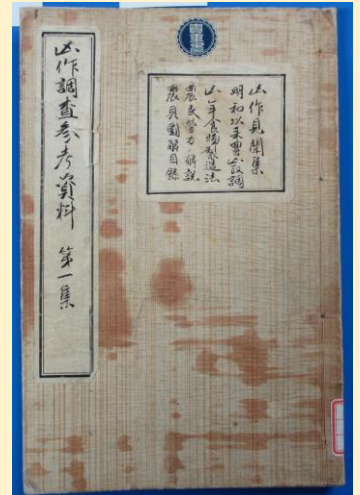 凶作調査参考資料 第一集
凶作見聞集
明和以来豊凶調
凶年食物製造法
農民労力ノ解説
農具図解目録